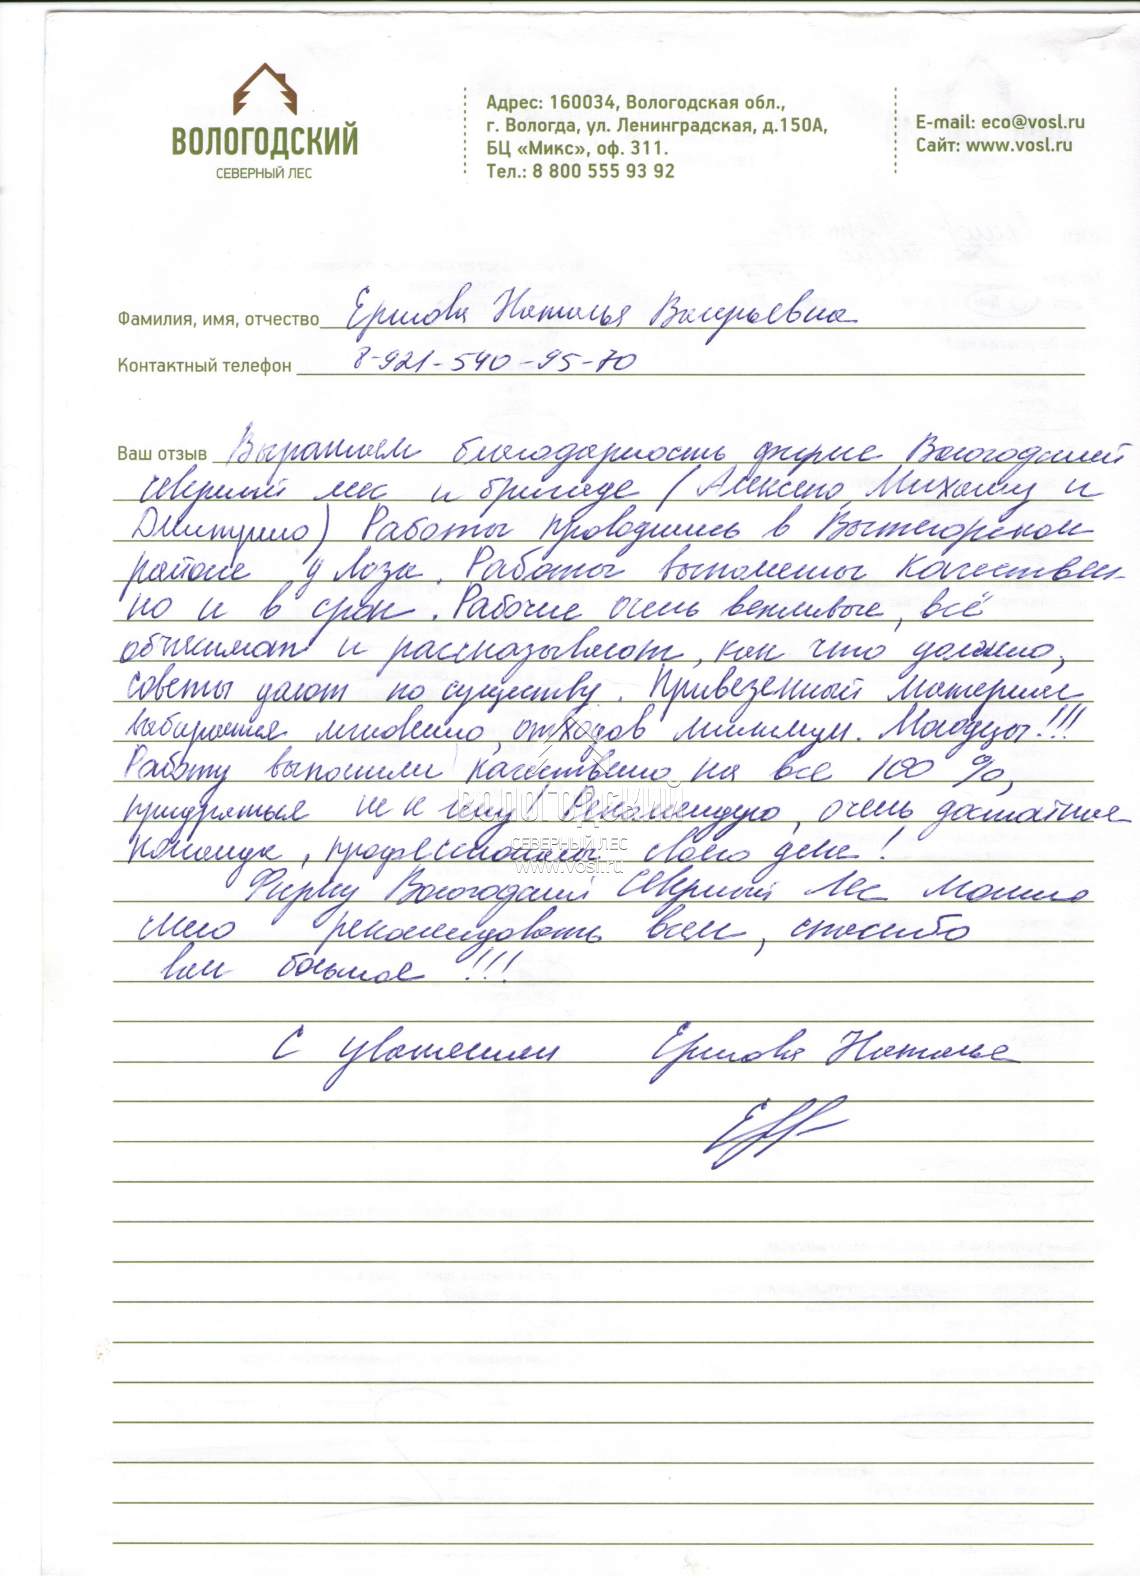 ВОЛОГОДСКИЙ
СЕВЕРНЫЙ ЛЕС
Адрес: 160034, Вологодская обл.,
г. Вологда, ул. Ленинградская, д.150А,
БЦ «Микс», оф. 311.
Тел.: 8 800 555 93 92
E-mail: eco@vosl.ru
Сайт: www.vosl.ru
Фамилия, имя, отчество Ершова Наталья Валерьевна
Контактный телефон 8-921-540-95-70
Ваш отзыв Выражаем благодарность фирме Вологодский
северный лес и бригаде (Алексею, Михаилу и
Дмитрию) Работы проводились в Вытегорском
районе у . Работы выполнены качествен-
но и в срок. Рабочие очень вежливые, всё
объяснят и рассказывают, как что должно,
советы дают по существу. Привезенный материал
выбирается мгновенно, отходов минимум. Молодцы!!!
Работу выполнили качественно на все 100 %,
придраться не к чему. Рекомендую, очень
команда, профессионалы своего дела!
Фирму Вологодский Северный Лес можно
смело рекомендовать всем, спасибо
вам большое!!!
С уважением Ершова Наталья
ВОЛОГОДСКИЙ
СЕВЕРНЫЙ ЛЕС
www.vosl.ru